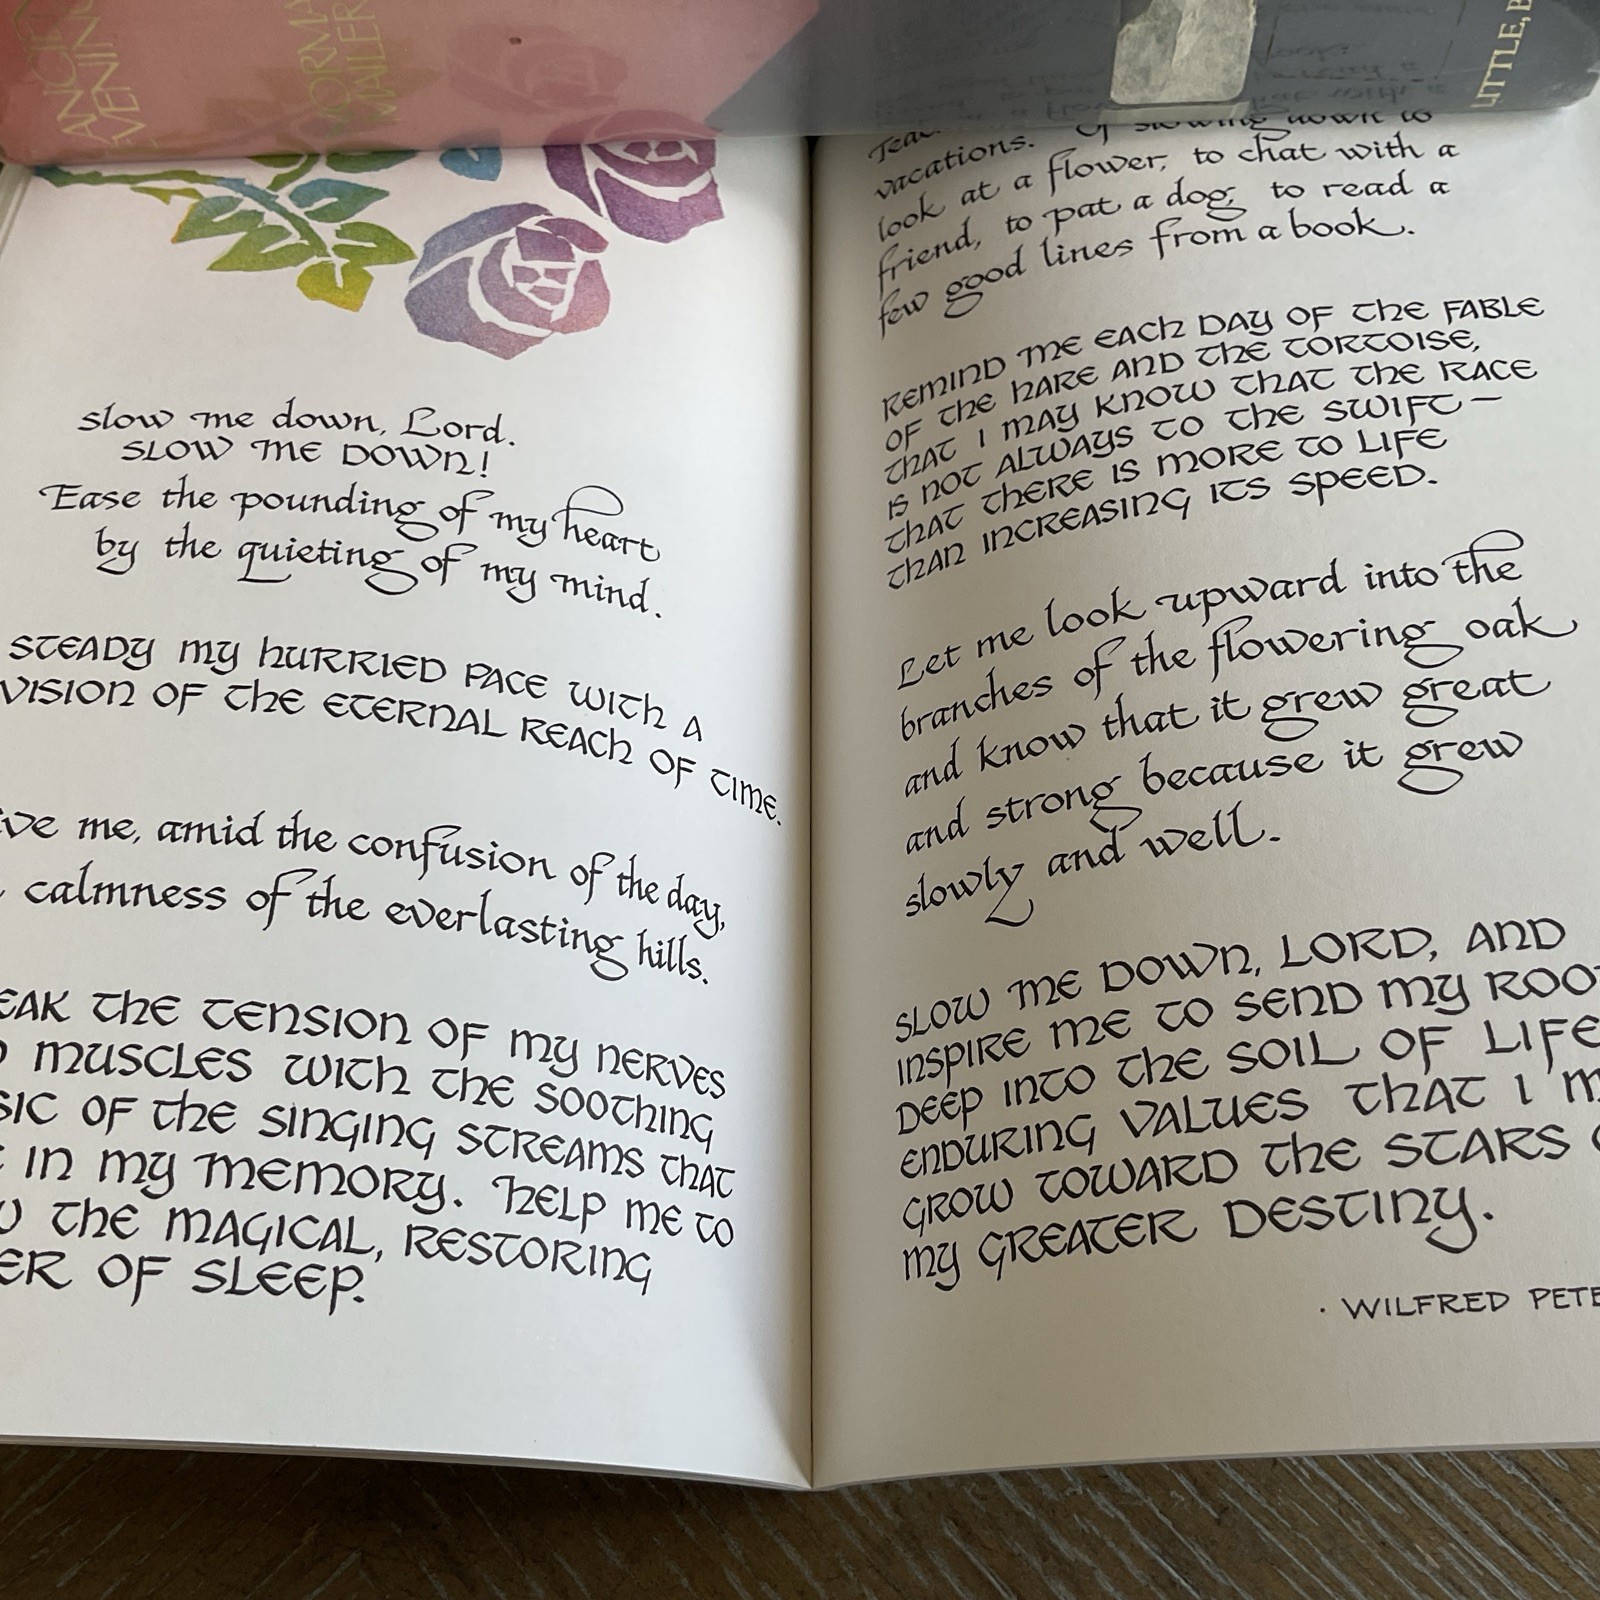 ANCIENT
EVENINGS
NORMAN
MAILER
LITTLE, B
slow me down, Lord.
SLOW ME DOWN!
Ease the pounding of my heart
by the quieting of my mind.
STEADY MY HURRIED PACE WITH A
VISION OF THE ETERNAL REACH OF TIME.
ive me, amid the confusion of the day,
calmness of the everlasting hills.
EAK THE TENSION OF MY NERVES
D MUSCLES WITH THE SOOTHING
SIC OF THE SINGING STREAMS THAT
E IN MY MEMORY. HELP ME TO
W THE MAGICAL, RESTORING
ER OF SLEEP.
vacations. Of slowing down to
look at a flower, to chat with a
friend, to pat a dog, to read a
few good lines from a book.
REMIND ME EACH DAY OF THE FABLE
OF THE HARE AND THE TORTOISE,
THAT I MAY KNOW THAT THE RACE
IS NOT ALWAYS TO THE SWIFT—
THAT THERE IS MORE TO LIFE
THAN INCREASING ITS SPEED.
Let me look upward into the
branches of the flowering oak
and know that it grew great
and strong because it grew
slowly and well.
SLOW ME DOWN, LORD, AND
INSPIRE ME TO SEND MY ROOT
DEEP INTO THE SOIL OF LIFE
ENDURING VALUES THAT I M
GROW TOWARD THE STARS
MY GREATER DESTINY.
· WILFRED PETE